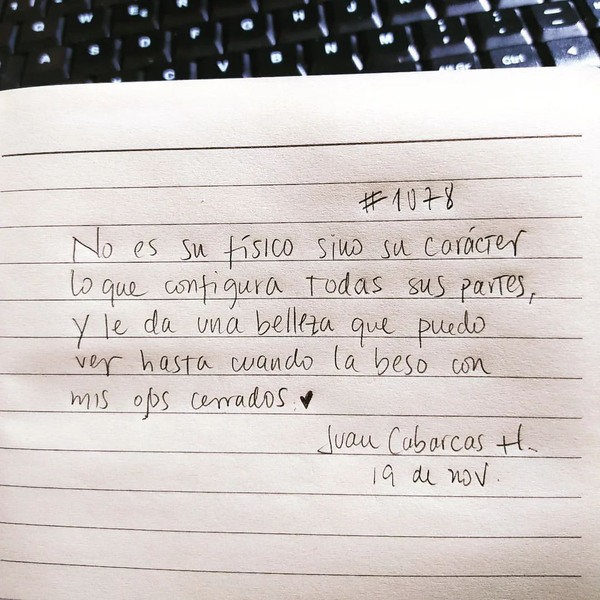 #1078
No es su físico sino su carácter
lo que configura todas sus partes,
y le da una belleza que puedo
ver hasta cuando la beso con
mis ojos cerrados. ♥
Juan Cabarcas H.
19 de nov.